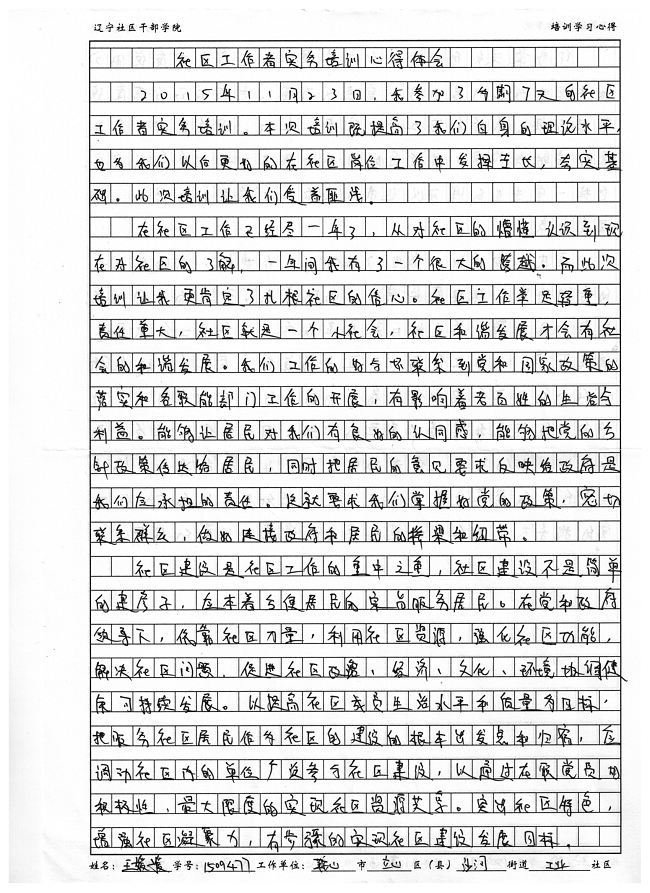 辽宁社区干部学院 培训学习心得
社区工作者实务培训心得体会
2015年11月23日,我参加了为期7天的社区
工作者实务培训。本次培训既提高了我们自身的理论水平,
也为我们以后更好的在社区岗位工作中发挥专长,夯实基
础。此次培训让我们受益匪浅。
在社区工作已经尽一年了,从对社区的懵懂认识到现
在对社区的了解,一年间我有了一个很大的跨越。而此次
培训让我更肯定了扎根社区的信心。社区工作举足轻重,
责任重大,社区就是一个小社会,社区和谐发展才会有社
会的和谐发展。我们工作的好与坏联系到党和国家政策的
落实和各职能部门工作的开展,有影响着老百姓的生活与
利益。能够让居民对我们有良好的认同感,能够把党的方
针政策传达给居民,同时把居民的意见要求反映给政府是
我们应承担的责任。这就要求我们掌握好党的政策,密切
联系群众,做好连接政府和居民的桥梁和纽带。
社区建设是社区工作的重中之重,社区建设不是简单
的建房子,应本着方便居民的宗旨服务居民。在党和政府
领导下,依靠社区力量,利用社区资源,强化社区功能,
解决社区问题,促进社区政治、经济、文化、环境协调健
康可持续发展。以提高社区成员生活水平和质量为目标,
把服务社区居民作为社区的建设的根本出发点和归宿,应
调动社区内的单位广泛参与社区建设,以通过在职党员的
积极性,最大限度的实现社区资源共享。突出社区特色,
增强社区凝聚力,有步骤的实现社区建设发展目标。
姓名: 学号:1509477 工作单位: 市 区(县) 沙河 街道 工业 社区